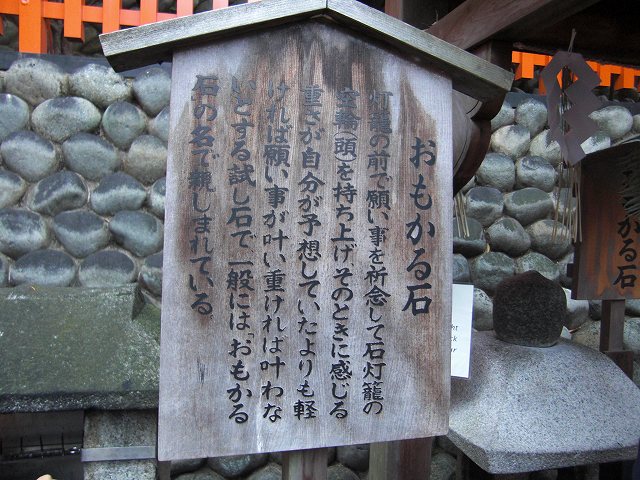 おもかる石
灯籠の前で願い事を祈念して石灯籠の
空輪（頭）を持ち上げ、そのときに感じる
重さが自分が予想していたよりも軽
ければ願い事が叶い、重ければ叶わな
いとする試し石で、一般には「おもかる
石の名で親しまれている。
かる石
ht
ck
or